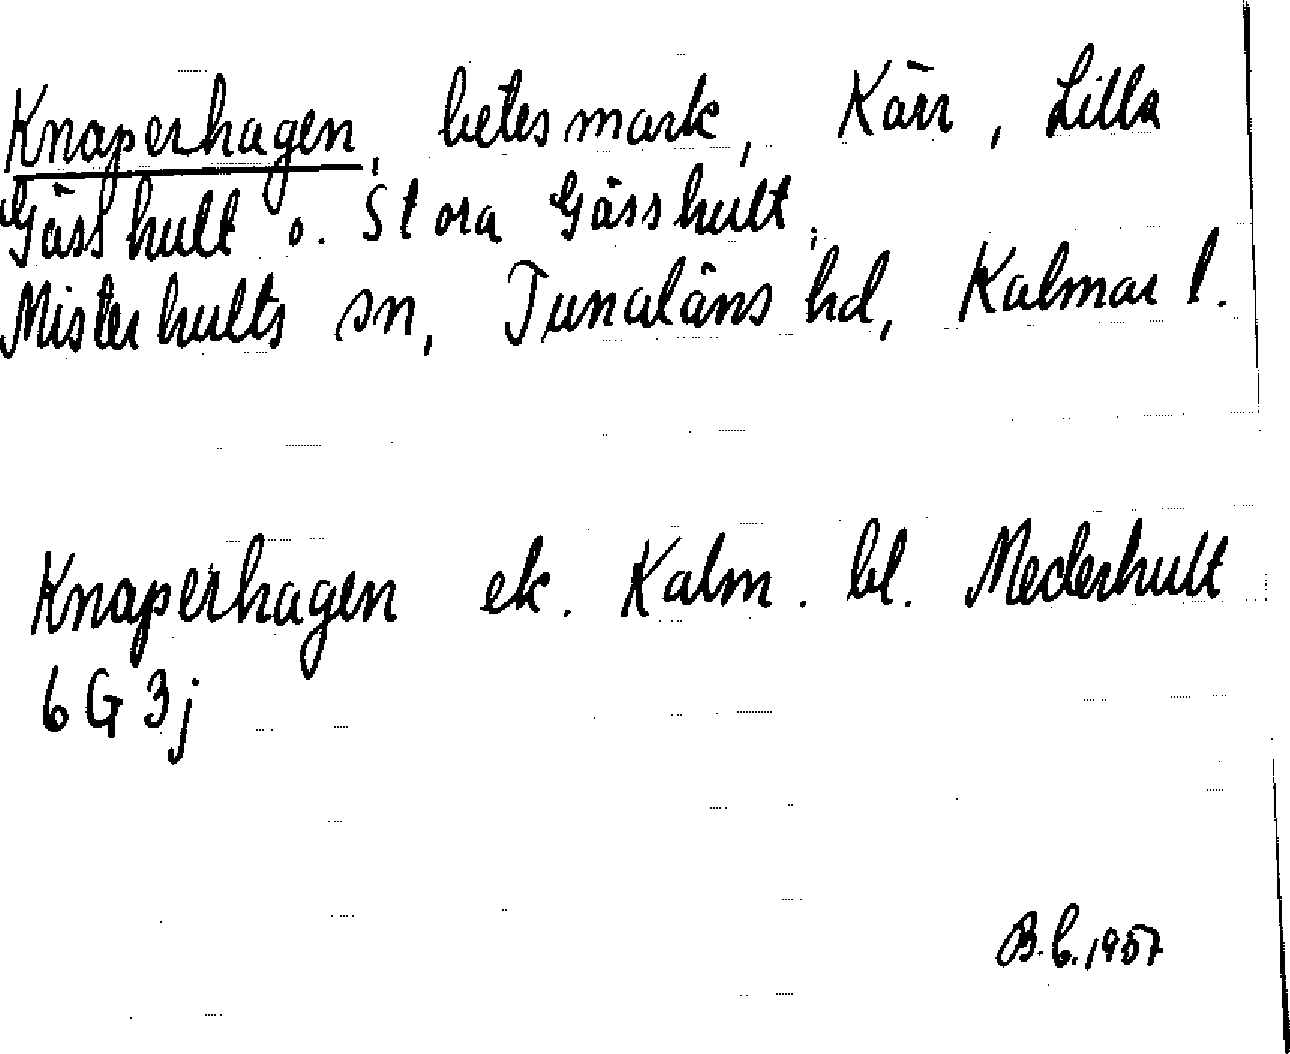 Knaperhagen, betesmark, Kärr, Lilla
Gässhult o. Stora Gässhult,
Misterhults sn, Tunaläns hd, Kalmar l.
Knaperhagen ek. Kalm. bl. Mederhult
6 G 3j
B.L. 1957